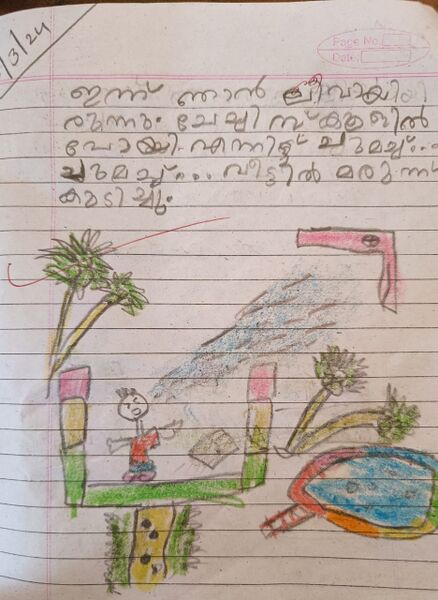 /3/24
Page No.
Date:
ഇന്ന് ഞാൻ ലീവായി
രുന്നു. ചേച്ചി സ്കൂളിൽ
പോയി. എന്നിട്ട് ചുമച്ച്...
ചുമച്ച്... വീട്ടിൽ മരുന്ന്
കുടിച്ചു.